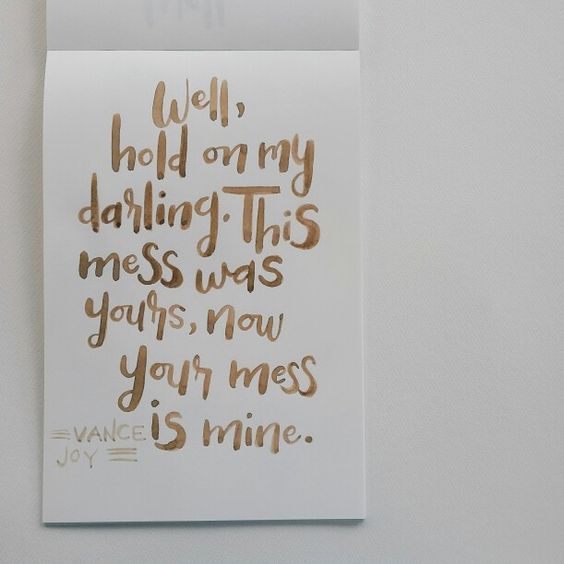 Well,
hold on my
darling. This
mess was
yours, now
your mess
is mine.
VANCE
JOY